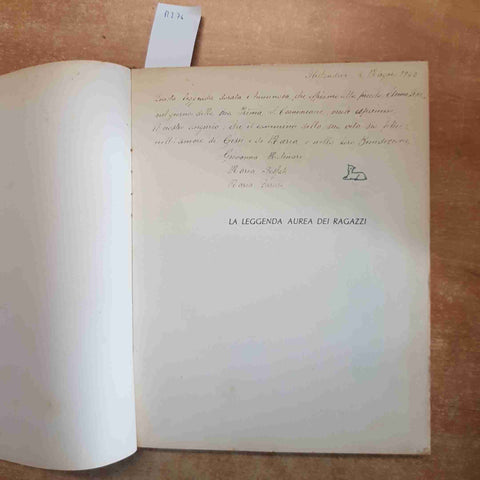 Maggio 1942
Questa leggenda dorata e luminosa, che offriamo alla piccola
nel giorno della sua Prima S. Comunione, vuole esprimere
il nostro augurio: che il cammino della sua vita sia felice
nell'amore di Gesù e di Maria e nella loro Benedizione.
Giovanna Molinari
Maria
Maria
LA LEGGENDA AUREA DEI RAGAZZI